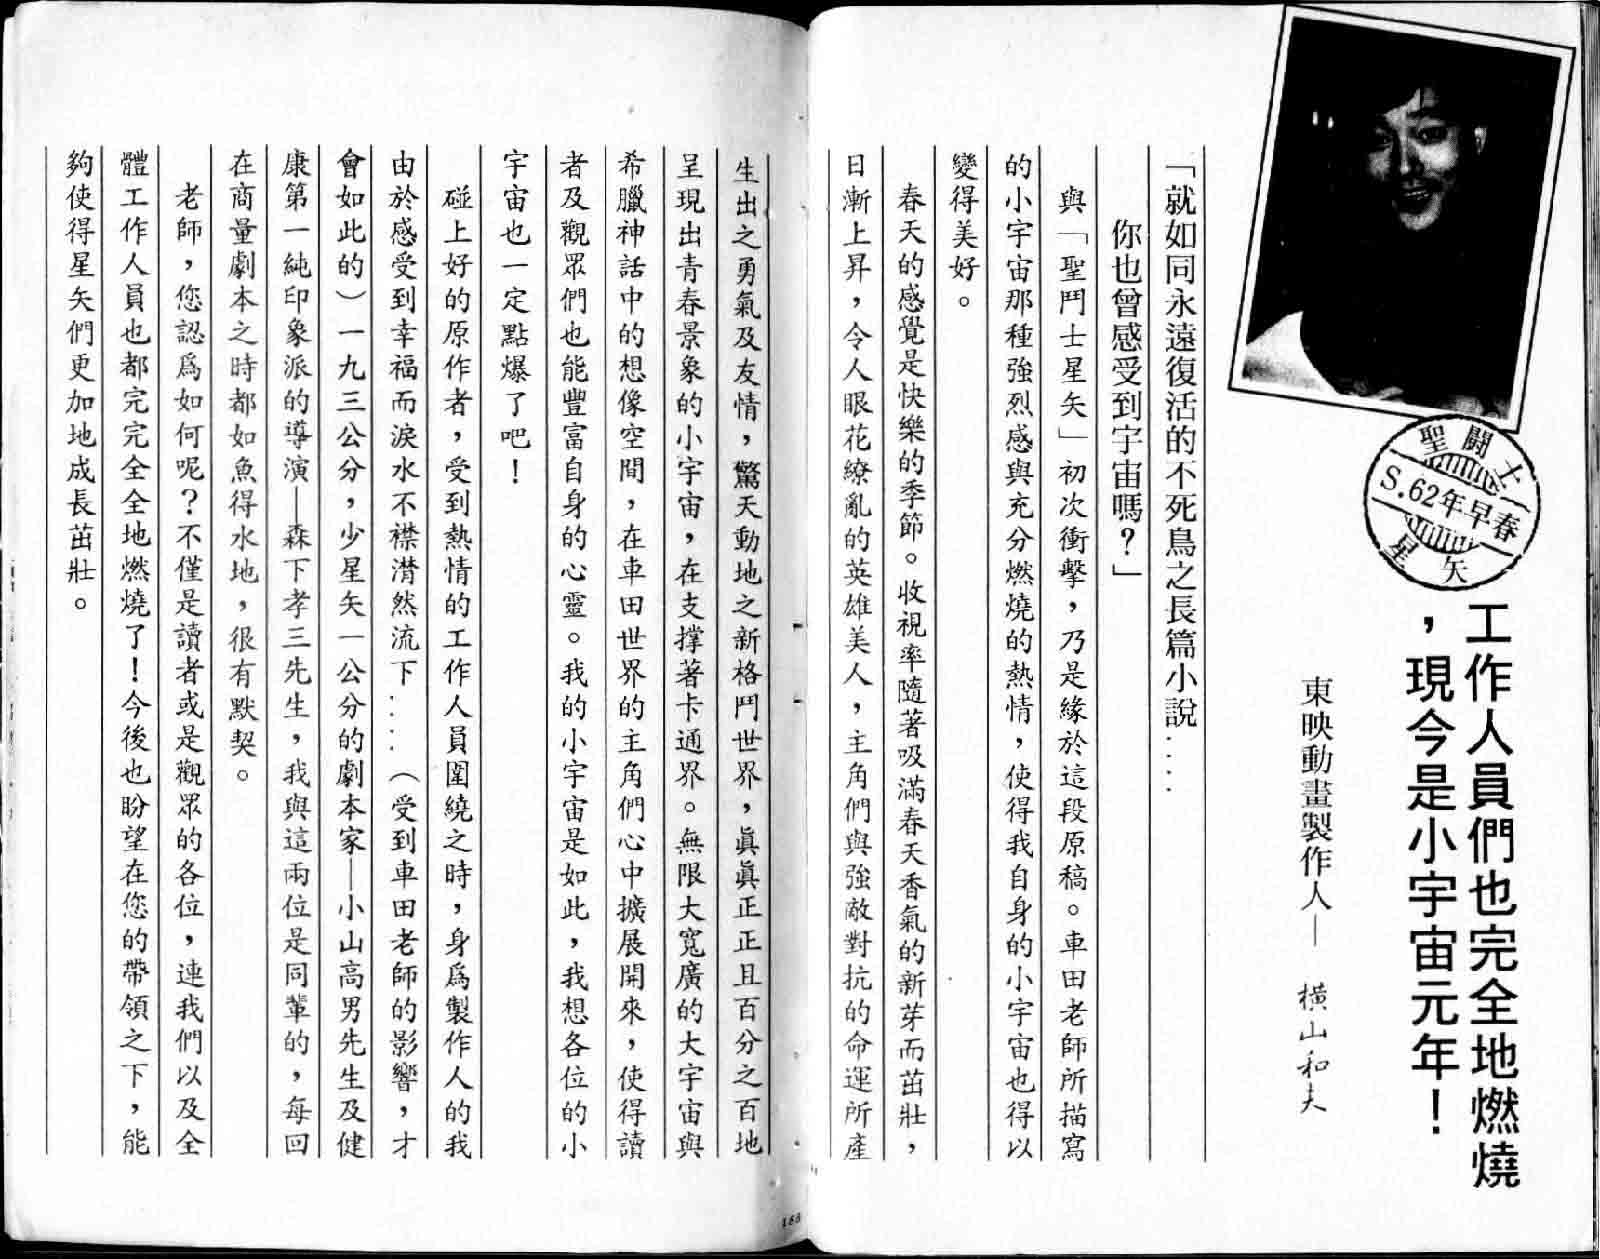 工作人員們也完全地燃燒
，現今是小宇宙元年！
東映動畫製作人— 橫山和夫
聖鬪士
S.62年早春
星矢
「就如同永遠復活的不死鳥之長篇小說……
你也曾感受到宇宙嗎？」
與「聖鬥士星矢」初次衝擊，乃是緣於這段原稿。車田老師所描寫
的小宇宙那種強烈感與充分燃燒的熱情，使得我自身的小宇宙也得以
變得美好。
春天的感覺是快樂的季節。收視率隨著吸滿春天香氣的新芽而茁壯，
日漸上昇，令人眼花繚亂的英雄美人，主角們與強敵對抗的命運所產
生出之勇氣及友情，驚天動地之新格鬥世界，眞眞正正且百分之百地
呈現出青春景象的小宇宙，在支撐著卡通界。無限大寬廣的大宇宙與
希臘神話中的想像空間，在車田世界的主角們心中擴展開來，使得讀
者及觀眾們也能豐富自身的心靈。我的小宇宙是如此，我想各位的小
宇宙也一定點爆了吧！
碰上好的原作者，受到熱情的工作人員圍繞之時，身爲製作人的我
由於感受到幸福而淚水不襟潸然流下……（受到車田老師的影響，才
會如此的）一九三公分，少星矢一公分的劇本家—小山高男先生及健
康第一純印象派的導演—森下孝三先生，我與這兩位是同輩的，每回
在商量劇本之時都如魚得水地，很有默契。
老師，您認爲如何呢？不僅是讀者或是觀眾的各位，連我們以及全
體工作人員也都完完全全地燃燒了！今後也盼望在您的帶領之下，能
夠使得星矢們更加地成長茁壯。